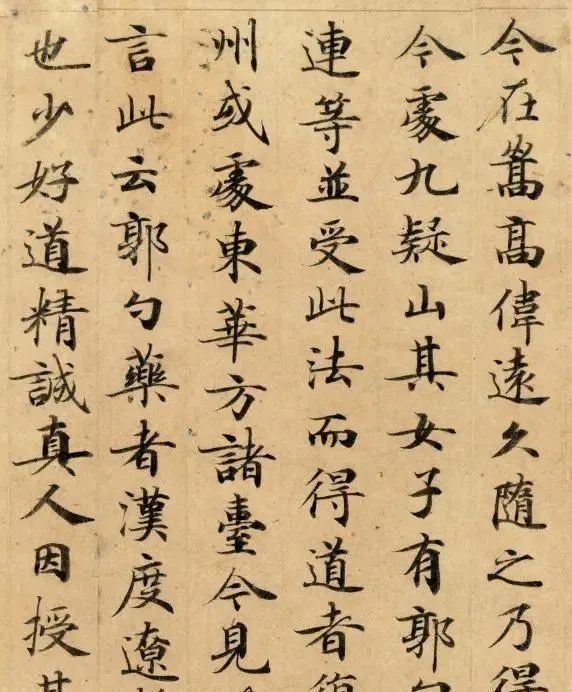 今在嵩高偉遠久隨之乃得
今處九疑山其女子有郭勺
連等並受此法而得道者復
州或處東華方諸臺今見
言此云郭勺藥者漢度遼
也少好道精誠真人因授其